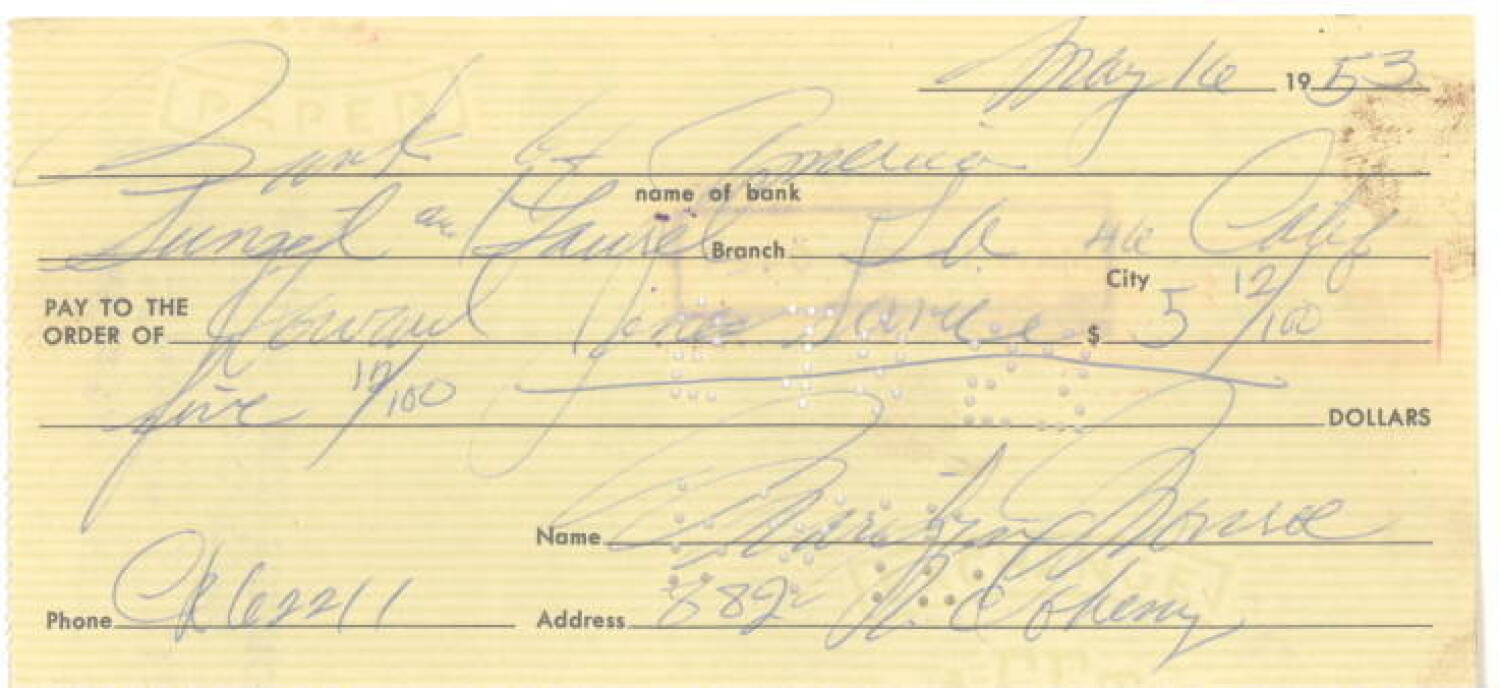 May 16 1953
Bank of America
name of bank
Sunset and Laurel Branch L.A. 46 Calif
City
PAY TO THE
ORDER OF Howard Jones Service $ 5 12/100
five 12/100 DOLLARS
Name Marilyn Monroe
Phone CR 62211 Address 882 N. Doheny
PAPER